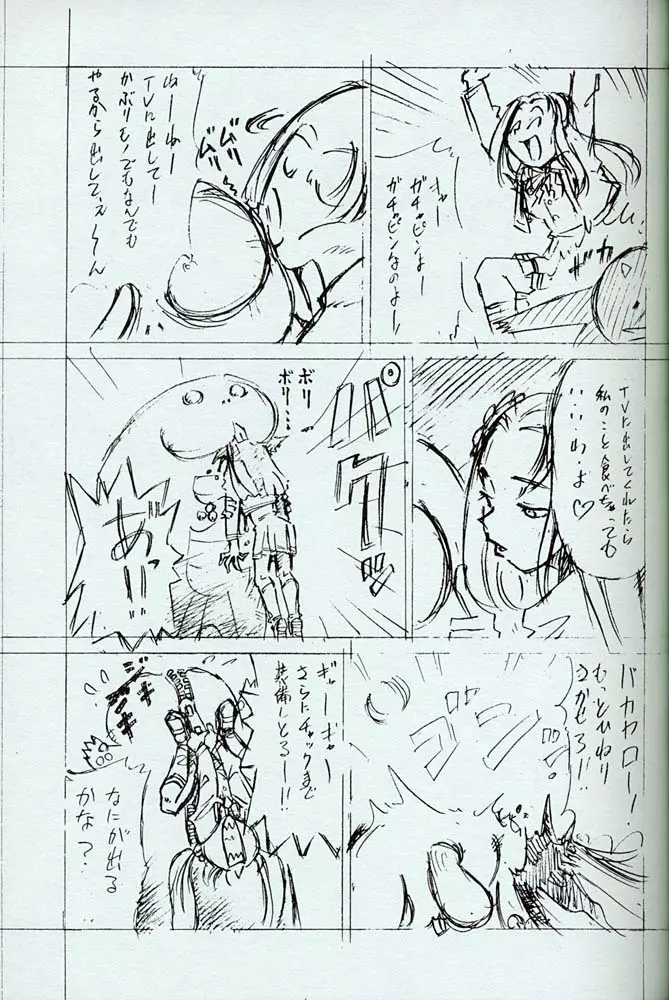 キャー
ガチャピンよー
ガチャピンなのよー!
ギガ
ねーねー
TVに出してー
かぶりモノでもなんでも
やるから出してぇ〜ん
ムリ
ムリ
TVに出してくれたら
私のこと食べちゃっても
い・い・わ・よ♡
パクッ
ボリ
ボリ…
あ"!!
バカヤロー!
もっとひねり
きかせろ!!
ゴン
ギャーギャー
さらにチャックまで
装備しとるー!!
ジジ
ギギ
なにが出る
かな?